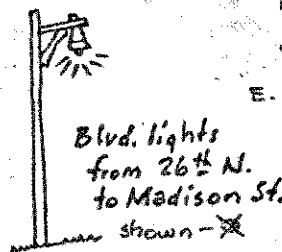 E.
Blvd. lights
from 26th N.
to Madison St.
shown -